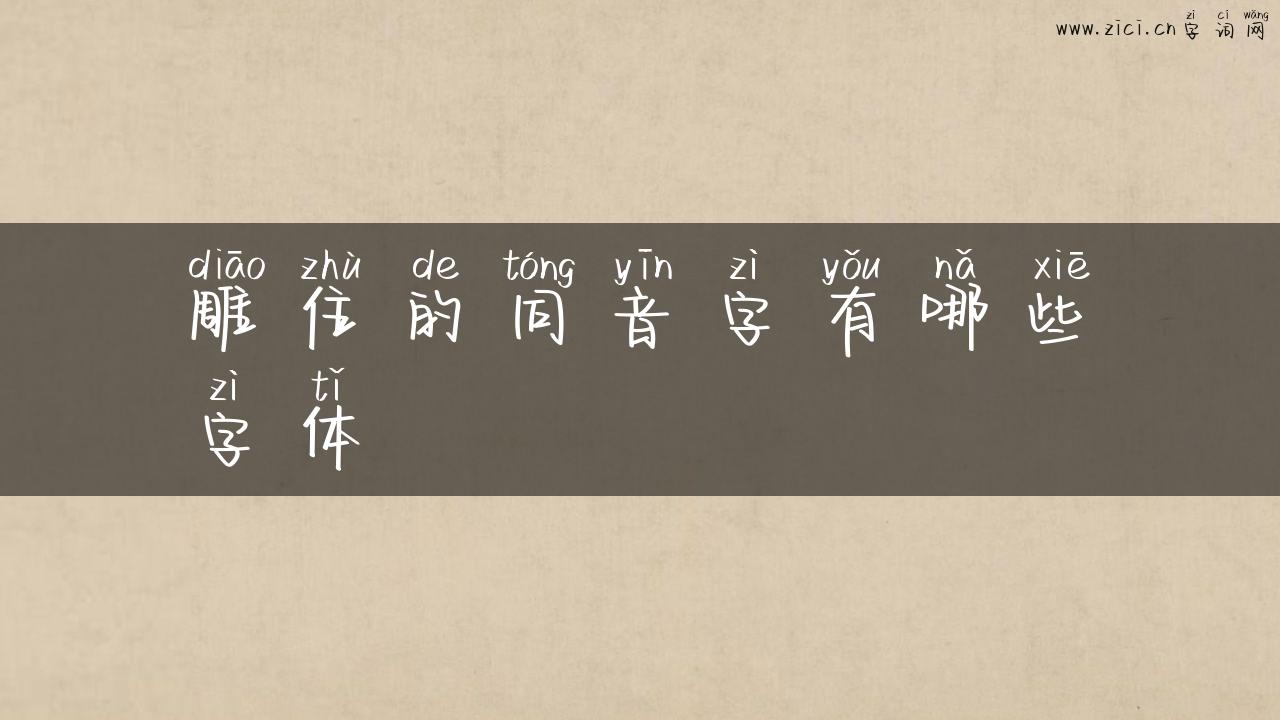 zì cí wǎng
www.zici.cn 字词网
diāo zhù de tóng yīn zì yǒu nǎ xiē
雕住的同音字有哪些
zì tǐ
字体